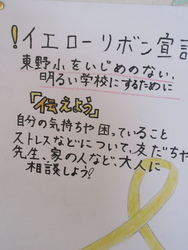 !イエローリボン宣言
東野小をいじめのない、
明るい学校にするために
「伝えよう」
自分の気持ちや困っていること
ストレスなどについて、友だちや
先生、家の人など、大人に
相談しよう!